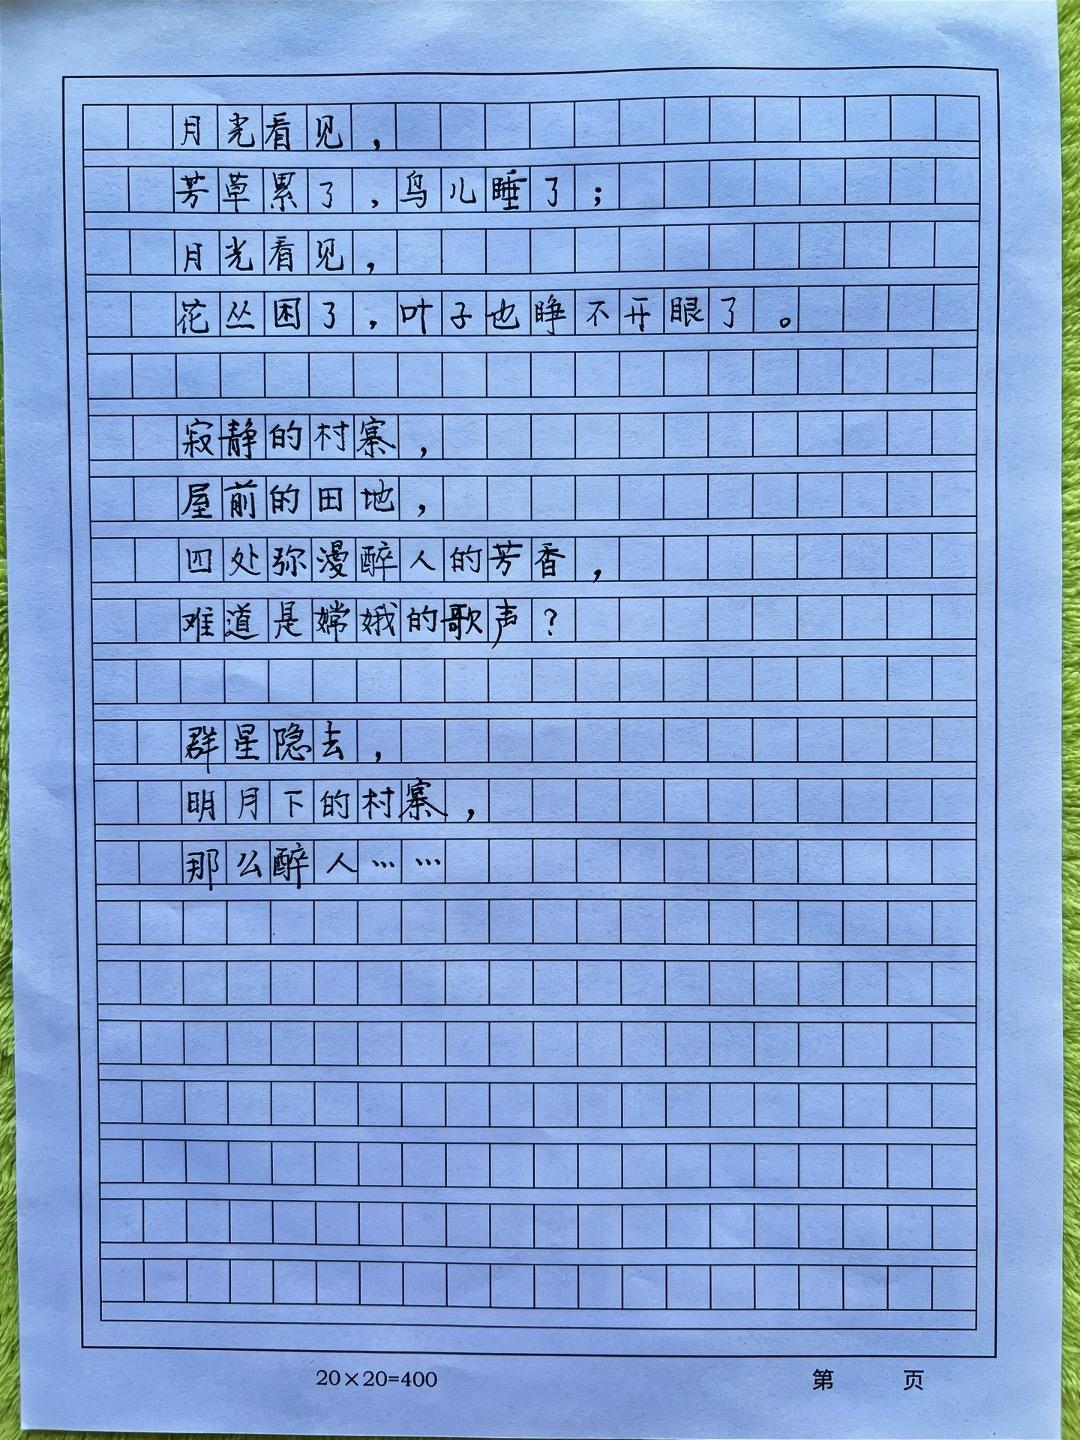 月光看见，
芳草累了，鸟儿睡了；
月光看见，
花丛困了，叶子也睁不开眼了。
寂静的村寨，
屋前的田地，
四处弥漫醉人的芳香，
难道是嫦娥的歌声？
群星隐去，
明月下的村寨，
那么醉人……
20×20=400
第 页